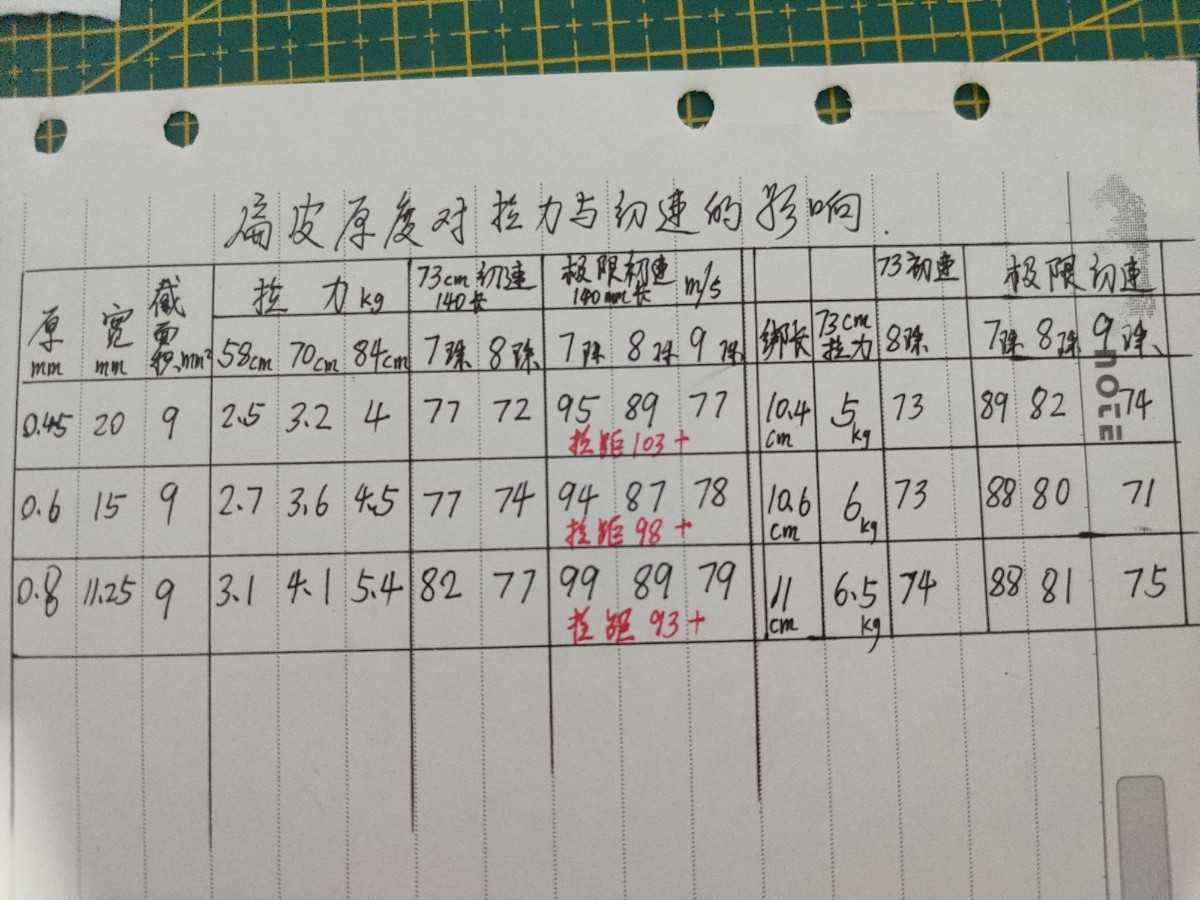 扁皮厚度对拉力与初速的影响.
厚mm 宽mm 截面积mm² 拉力kg 73cm初速140长 极限初速140mm长 m/s 73初速 极限初速
58cm 70cm 84cm 7珠 8珠 7珠 8珠 9珠 绑长 73cm拉力 8珠 7珠 8珠 9珠
0.45 20 9 2.5 3.2 4 77 72 95 89 77 10.4cm 5kg 73 89 82 74
拉距103+
0.6 15 9 2.7 3.6 4.5 77 74 94 87 78 10.6cm 6kg 73 88 80 71
拉距98+
0.8 11.25 9 3.1 4.1 5.4 82 77 99 89 79 11cm 6.5kg 74 88 81 75
拉距93+